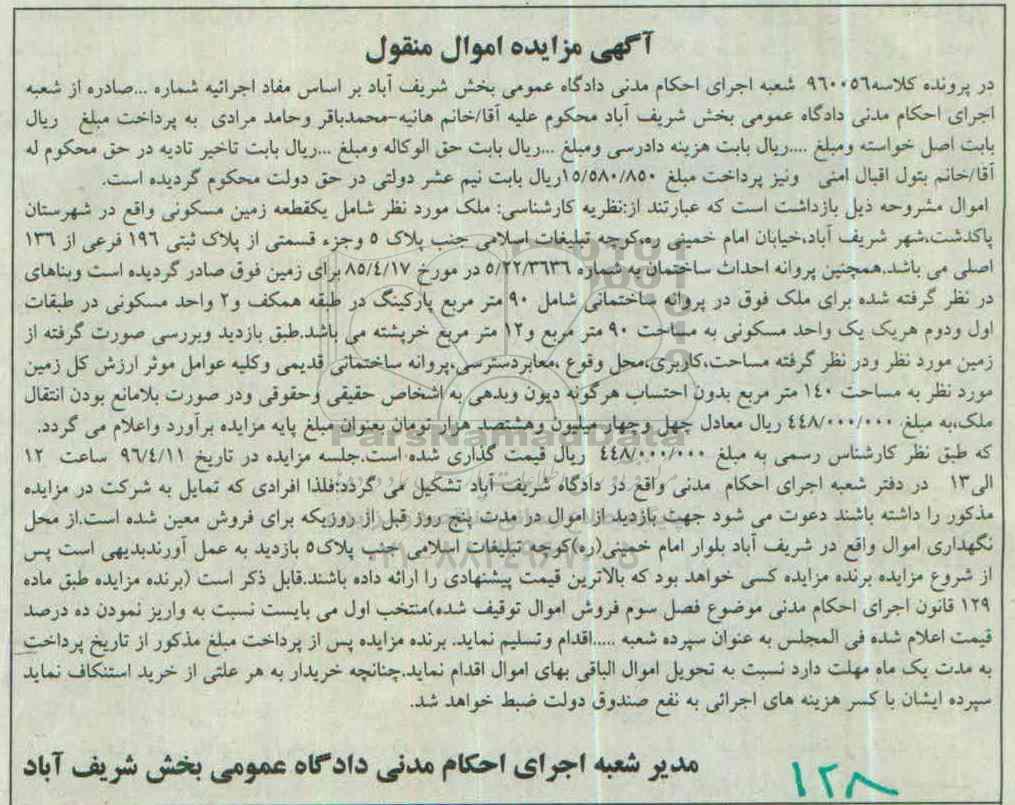 آگهی مزایده اموال منقول
در پرونده کلاسه۹۶۰۰۵۶ شعبه اجرای احکام مدنی دادگاه عمومی بخش شریف آباد بر اساس مفاد اجرائیه شماره ...صادره از شعبه
اجرای احکام مدنی دادگاه عمومی بخش شریف آباد محکوم علیه آقا/خانم هانیه-محمدباقر وحامد مرادی به پرداخت مبلغ ریال
بابت اصل خواسته ومبلغ ....ریال بابت هزینه دادرسی ومبلغ ...ریال بابت حق الوکاله ومبلغ ...ریال بابت تاخیر تادیه در حق محکوم له
آقا/خانم بتول اقبال امنی ونیز پرداخت مبلغ ۱۵/۵۸۰/۸۵۰ریال بابت نیم عشر دولتی در حق دولت محکوم گردیده است.
اموال مشروحه ذیل بازداشت است که عبارتند از:نظریه کارشناسی: ملک مورد نظر شامل یکقطعه زمین مسکونی واقع در شهرستان
پاکدشت،شهر شریف آباد،خیابان امام خمینی ره،کوچه تبلیغات اسلامی جنب پلاک ۵ وجزء قسمتی از پلاک ثبتی ۱۹۶ فرعی از ۱۳۶
اصلی می باشد.همچنین پروانه احداث ساختمان به شماره ۵/۲۲/۳۶۳۶ در مورخ ۸۵/۴/۱۷ برای زمین فوق صادر گردیده است وبناهای
در نظر گرفته شده برای ملک فوق در پروانه ساختمانی شامل ۹۰ متر مربع پارکینگ در طبقه همکف و۲ واحد مسکونی در طبقات
اول ودوم هریک یک واحد مسکونی به مساحت ۹۰ متر مربع و۱۲ متر مربع خرپشته می باشد.طبق بازدید وبررسی صورت گرفته از
زمین مورد نظر ودر نظر گرفته مساحت،کاربری،محل وقوع ،معابردسترسی،پروانه ساختمانی قدیمی وکلیه عوامل موثر ارزش کل زمین
مورد نظر به مساحت ۱۴۰ متر مربع بدون احتساب هرگونه دیون وبدهی به اشخاص حقیقی وحقوقی ودر صورت بلامانع بودن انتقال
ملک،به مبلغ ۴۴۸/۰۰۰/۰۰۰ ریال معادل چهل وچهار میلیون وهشتصد هزار تومان بعنوان مبلغ پایه مزایده برآورد واعلام می گردد.
که طبق نظر کارشناس رسمی به مبلغ ۴۴۸/۰۰۰/۰۰۰ ریال قیمت گذاری شده است.جلسه مزایده در تاریخ ۹۶/۴/۱۱ ساعت ۱۲
الی۱۳ در دفتر شعبه اجرای احکام مدنی واقع در دادگاه شریف آباد تشکیل می گردد؛فلذا افرادی که تمایل به شرکت در مزایده
مذکور را داشته باشند دعوت می شود جهت بازدید از اموال در مدت پنج روز قبل از روزیکه برای فروش معین شده است.از محل
نگهداری اموال واقع در شریف آباد بلوار امام خمینی(ره)کوچه تبلیغات اسلامی جنب پلاک۵ بازدید به عمل آورندبدیهی است پس
از شروع مزایده برنده مزایده کسی خواهد بود که بالاترین قیمت پیشنهادی را ارائه داده باشند.قابل ذکر است (برنده مزایده طبق ماده
۱۲۹ قانون اجرای احکام مدنی موضوع فصل سوم فروش اموال توقیف شده)منتخب اول می بایست نسبت به واریز نمودن ده درصد
قیمت اعلام شده فی المجلس به عنوان سپرده شعبه .....اقدام وتسلیم نماید. برنده مزایده پس از پرداخت مبلغ مذکور از تاریخ پرداخت
به مدت یک ماه مهلت دارد نسبت به تحویل اموال الباقی بهای اموال اقدام نماید.چنانچه خریدار به هر علتی از خرید استنکاف نماید
سپرده ایشان با کسر هزینه های اجرائی به نفع صندوق دولت ضبط خواهد شد.
مدیر شعبه اجرای احکام مدنی دادگاه عمومی بخش شریف آباد
۱۲۸
ParsNamadData